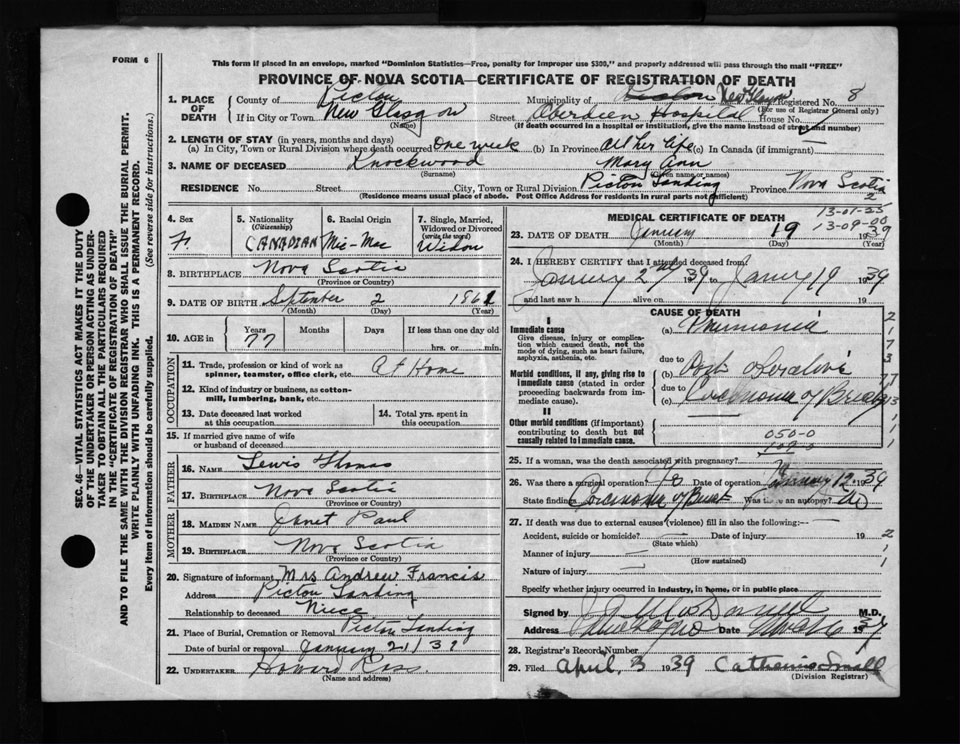 FORM 6
This form if placed in an envelope, marked "Dominion Statistics—Free, penalty for improper use $300," and properly addressed will pass through the mail "FREE"
PROVINCE OF NOVA SCOTIA—CERTIFICATE OF REGISTRATION OF DEATH
1. PLACE OF DEATH
County of Pictou Municipality of Pictou New Glasgow Registered No. 8
(For use of Registrar General only)
If in City or Town New Glasgow Street Aberdeen Hospital
(Name) (If death occurred in a hospital or institution, give the name instead of street and number)
2. LENGTH OF STAY (in years, months and days)
(a) In City, Town or Rural Division where death occurred One week (b) In Province All her life (c) In Canada (if immigrant)
3. NAME OF DECEASED Knockwood Mary Ann
(Surname) (Given name or names)
RESIDENCE No. Street City, Town or Rural Division Pictou Landing Province Nova Scotia
(Residence means usual place of abode. Post Office Address for residents in rural parts not sufficient) 2
4. Sex F.
5. Nationality (Citizenship) CANADIAN
6. Racial Origin Mic-Mac
7. Single, Married, Widowed or Divorced (write the word) Widow
8. BIRTHPLACE Nova Scotia
(Province or Country)
9. DATE OF BIRTH September 2 1861
(Month) (Day) (Year)
10. AGE in Years 77 Months Days If less than one day old hrs. or min.
OCCUPATION
11. Trade, profession or kind of work as spinner, teamster, office clerk, etc. At Home
12. Kind of industry or business, as cotton-mill, lumbering, bank, etc.
13. Date deceased last worked at this occupation
14. Total yrs. spent in this occupation
15. If married give name of wife or husband of deceased
FATHER
16. NAME Lewis Thomas
17. BIRTHPLACE Nova Scotia
(Province or Country)
MOTHER
18. MAIDEN NAME Janet Paul
19. BIRTHPLACE Nova Scotia
(Province or Country)
20. Signature of informant Mrs Andrew Francis
Address Pictou Landing
Relationship to deceased Niece
21. Place of Burial, Cremation or Removal Pictou Landing
Date of burial or removal January 21/39
22. UNDERTAKER Howard Ross
(Name and address)
MEDICAL CERTIFICATE OF DEATH
13-01-25
13-09-00
23. DATE OF DEATH January 19 1939
(Month) (Day) (Year)
24. I HEREBY CERTIFY that I attended deceased from
January 2nd 39 to January 19 1939
and last saw h alive on 19
CAUSE OF DEATH
I
Immediate cause
Give disease, injury or complication which caused death, not the mode of dying, such as heart failure, asphyxia, asthenia, etc.
(a) Pneumonia
due to
Morbid conditions, if any, giving rise to immediate cause (stated in order proceeding backwards from immediate cause).
(b) Post Operative
due to
(c) Carcinoma of Breast
II
Other morbid conditions (if important) contributing to death but not causally related to immediate cause.
050-0
25. If a woman, was the death associated with pregnancy? No
26. Was there a surgical operation? Yes Date of operation January 12 1939
State findings Carcinoma of Breast Was there an autopsy? No
27. If death was due to external causes (violence) fill in also the following:—
Accident, suicide or homicide? Date of injury 19
(State which)
Manner of injury
(How sustained)
Nature of injury
Specify whether injury occurred in industry, in home, or in public place
Signed by MacDonald M.D.
Address Date 19
28. Registrar's Record Number
29. Filed April 3 1939 Catherine Small
(Division Registrar)
SEC. 46—VITAL STATISTICS ACT MAKES IT THE DUTY
OF THE UNDERTAKER OR PERSON ACTING AS UNDER-
TAKER TO OBTAIN ALL THE PARTICULARS REQUIRED
IN THE "CERTIFICATE OF REGISTRATION OF DEATH"
AND TO FILE THE SAME WITH THE DIVISION REGISTRAR WHO SHALL ISSUE THE BURIAL PERMIT.
WRITE PLAINLY WITH UNFADING INK. THIS IS A PERMANENT RECORD.
Every item of information should be carefully supplied. (See reverse side for instructions.)